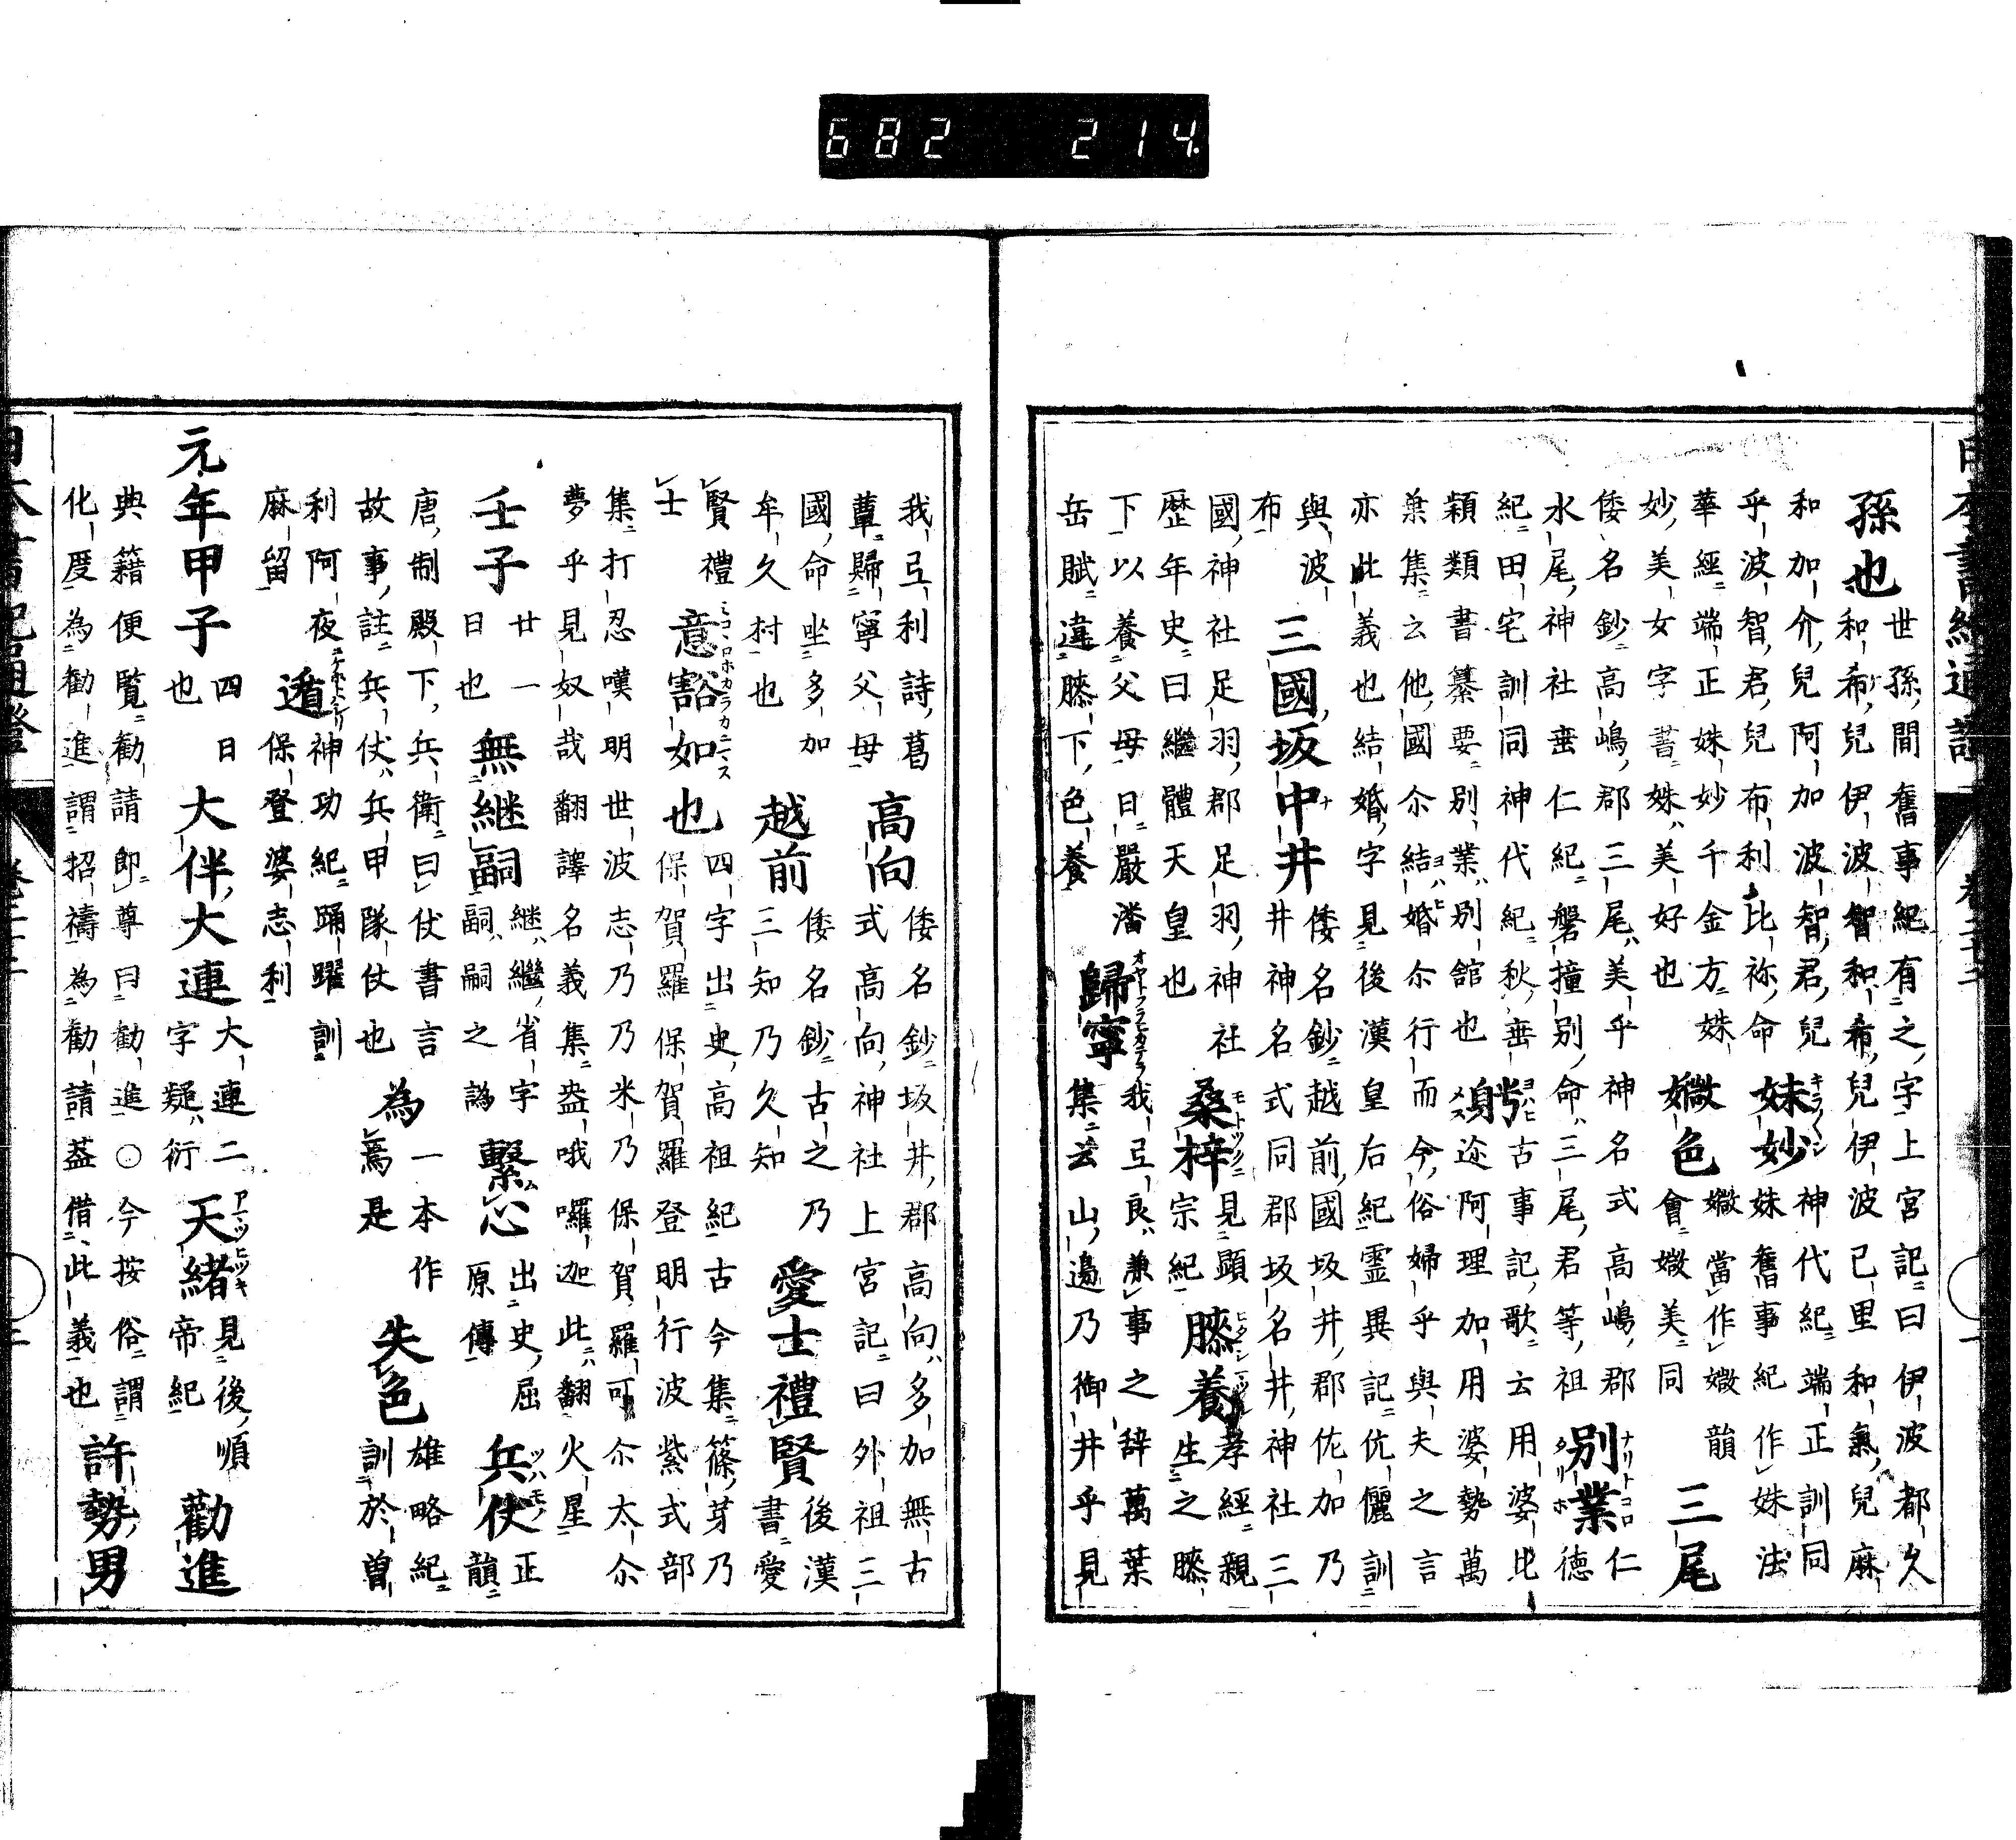 682 214
孫也 世孫間舊事紀有之字上宮記曰伊波都久
和希兒伊波智和希兒伊波己里和氣兒麻
和加介兒阿加波智君兒 神代紀端正訓同
乎波智君兒布利比祢命 姝妙 姝舊事紀作姝法
華經端正姝妙千金方姝 媺當作媺韻
妙美女字書姝美好也 媺色 會媺美同 三尾
倭名鈔高嶋郡三尾美乎神名式高嶋郡 仁
水尾神社垂仁紀磐撞別命三尾君等祖 別業 德
紀田宅訓同神代紀秋垂 古事記歌云用婆比
穎類書纂要別業別舘也 娉 迩阿理加用婆勢萬
葉集云他國尓結婚尓行而今俗婦乎與夫之言
亦此義也結婚字見後漢皇后紀霊異記伉儷訓
與波 倭名鈔越前國坂井郡佐加乃
布 三國坂中井 井神名式同郡坂名井神社三
國神社足羽郡足羽神社 見顯 孝經親
歴年史曰繼體天皇也 桑梓 宗紀 膝養 生之膝
下以養父母日嚴潘 我弖良兼事之辞萬葉
岳賦違膝下色養 歸寧 集云山邊乃御井乎見
我弖利詩葛 倭名鈔坂井郡高向多加無古
蕈歸寧父母 高向 式高向神社上宮記曰外祖三
國命坐多加 倭名鈔古之乃 後漢
牟久村也 越前 三知乃久知 愛士禮賢 書愛
賢禮 四字出史高祖紀古今集篠芽乃
士 意豁如也 保賀羅保賀羅登明行波紫式部
集打忍嘆明世波志乃乃米乃保賀羅可尓太尓
夢乎見奴哉翻譯名義集盎哦囉迦此翻火星
壬子 廿一 継繼省字 出史屈 正
日也 無継嗣 嗣嗣之譌 繫心 原傳 兵仗 韻
唐制殿下兵衛曰仗書言 一本作 雄略紀
故事註兵仗兵甲隊仗也 為 焉是 失色 訓於曽
利阿夜 神功紀踊躍訓
麻留 遁 保登婆志利
元年甲子 四日 大連二 見後順
也 大伴大連 字疑衍 天緒 帝紀 勸進
典籍便覧勸請即尊曰勸進○今按俗謂
化度為勸進謂招禱為勸請葢借此義也 許勢男